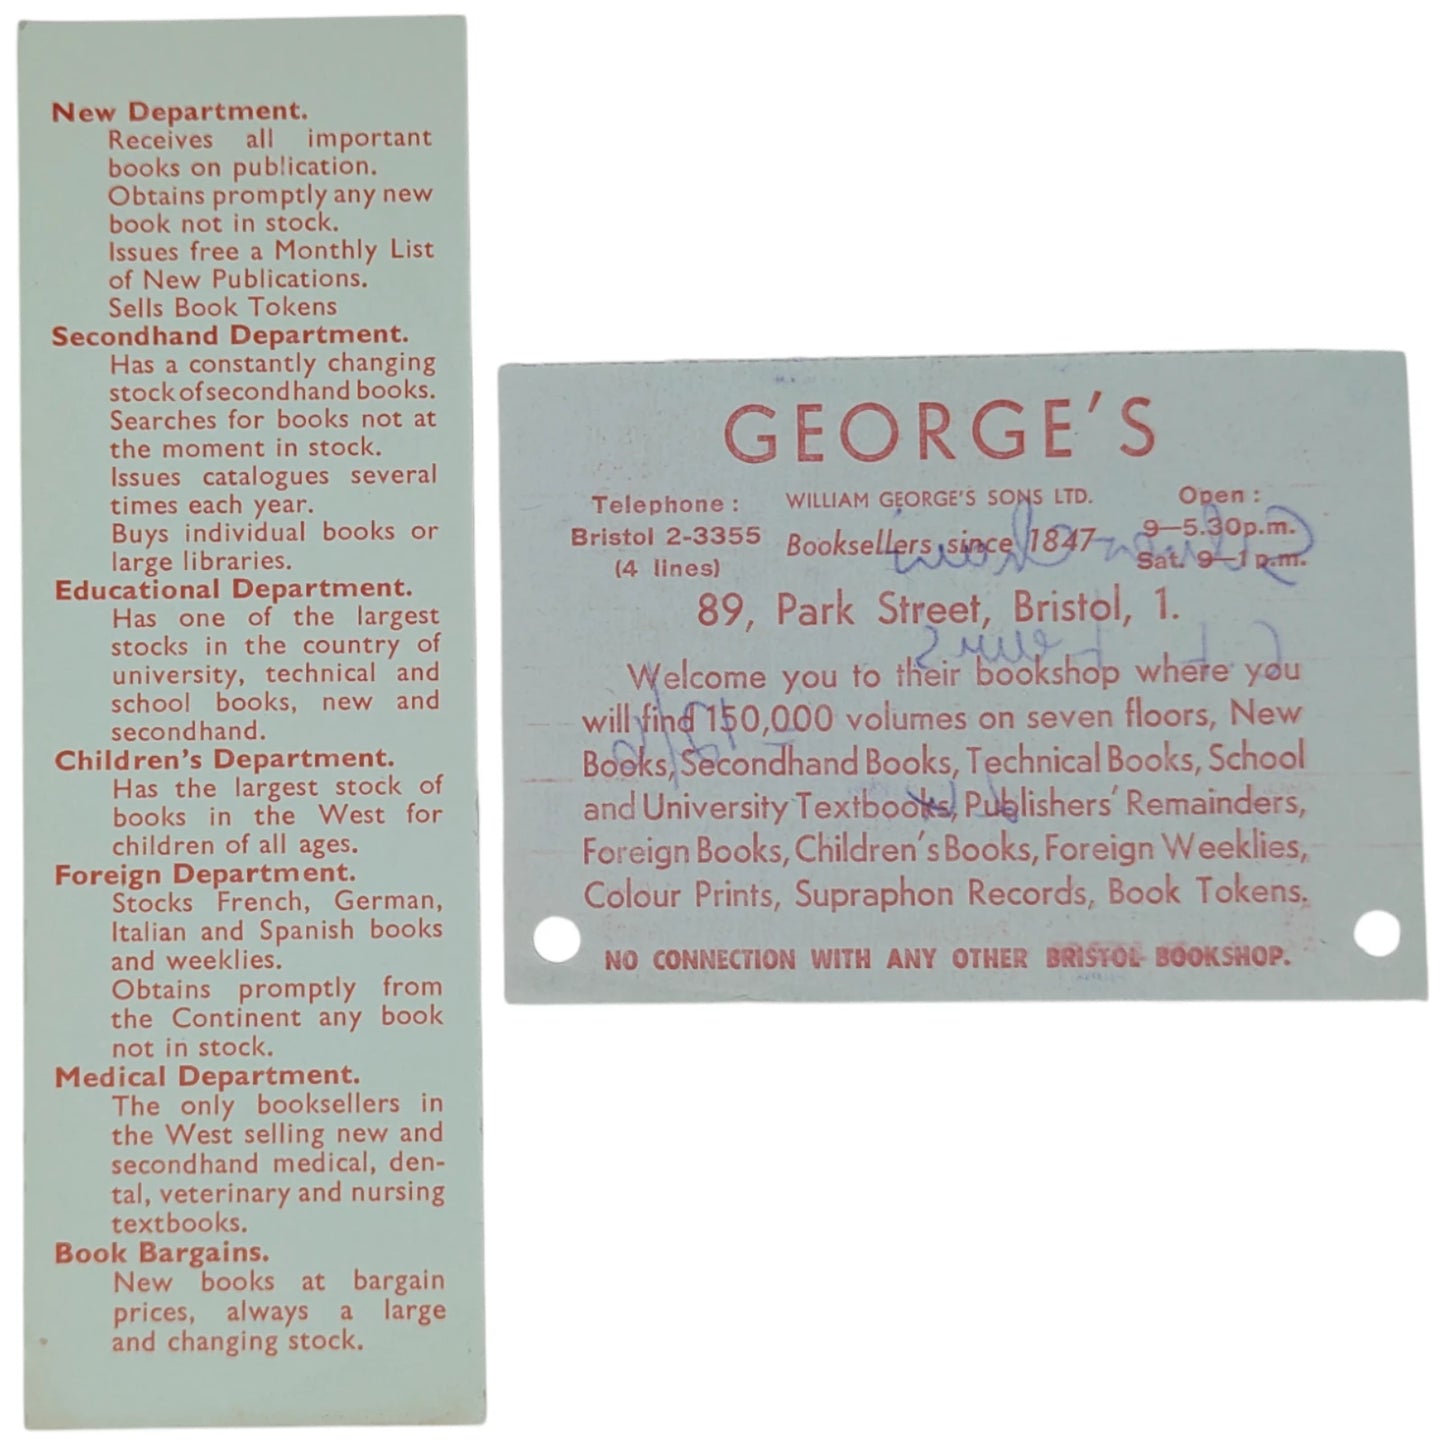 New Department.
Receives all important
books on publication.
Obtains promptly any new
book not in stock.
Issues free a Monthly List
of New Publications.
Sells Book Tokens
Secondhand Department.
Has a constantly changing
stock of secondhand books.
Searches for books not at
the moment in stock.
Issues catalogues several
times each year.
Buys individual books or
large libraries.
Educational Department.
Has one of the largest
stocks in the country of
university, technical and
school books, new and
secondhand.
Children's Department.
Has the largest stock of
books in the West for
children of all ages.
Foreign Department.
Stocks French, German,
Italian and Spanish books
and weeklies.
Obtains promptly from
the Continent any book
not in stock.
Medical Department.
The only booksellers in
the West selling new and
secondhand medical, den-
tal, veterinary and nursing
textbooks.
Book Bargains.
New books at bargain
prices, always a large
and changing stock.
GEORGE'S
Telephone :
Bristol 2-3355
(4 lines)
WILLIAM GEORGE'S SONS LTD.
Booksellers since 1847
Open :
9—5.30p.m.
Sat. 9—1 p.m.
89, Park Street, Bristol, 1.
Welcome you to their bookshop where you
will find 150,000 volumes on seven floors, New
Books, Secondhand Books, Technical Books, School
and University Textbooks, Publishers' Remainders,
Foreign Books, Children's Books, Foreign Weeklies,
Colour Prints, Supraphon Records, Book Tokens.
NO CONNECTION WITH ANY OTHER BRISTOL BOOKSHOP.